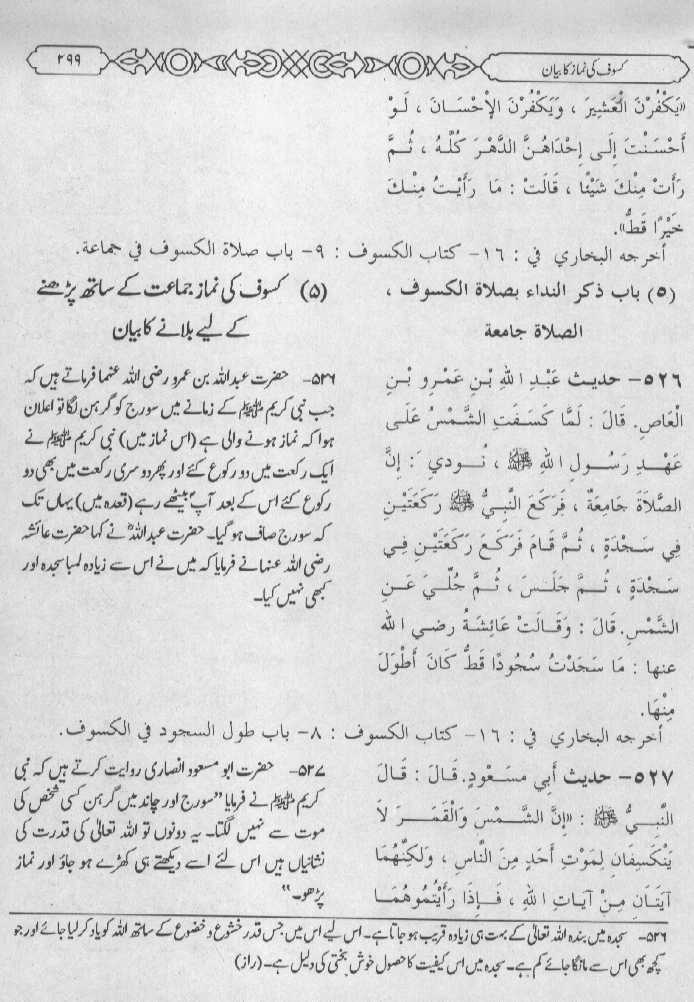 کسوف کی نماز کا بیان
۲۹۹
«يَكْفُرْنَ الْعَشِيرَ ، وَيَكْفُرْنَ الإِحْسَانَ ، لَوْ
أَحْسَنْتَ إِلَى إِحْدَاهُنَّ الدَّهْرَ كُلَّهُ ، ثُمَّ
رَأَتْ مِنْكَ شَيْئًا ، قَالَتْ : مَا رَأَيْتُ مِنْكَ
خَيْرًا قَطُّ».
أخرجه البخاري في : ١٦- كتاب الكسوف : ٩- باب صلاة الكسوف في جماعة.
(٥) باب ذكر النداء بصلاة الكسوف ،
الصلاة جامعة
(۵) کسوف کی نماز جماعت کے ساتھ پڑھنے
کے لیے بلانے کا بیان
٥٢٦- حديث عَبْدِ اللهِ بْنِ عَمْرِو بْنِ
الْعَاصِ. قَالَ : لَمَّا كَسَفَتِ الشَّمْسُ عَلَى
عَهْدِ رَسُولِ اللهِ ﷺ ، نُودِيَ : إِنَّ
الصَّلاَةَ جَامِعَةٌ ، فَرَكَعَ النَّبِيُّ ﷺ رَكْعَتَيْنِ
فِي سَجْدَةٍ ، ثُمَّ قَامَ فَرَكَعَ رَكْعَتَيْنِ فِي
سَجْدَةٍ ، ثُمَّ جَلَسَ ، ثُمَّ جُلِّيَ عَنِ
الشَّمْسِ. قَالَ : وَقَالَتْ عَائِشَةُ رضي الله
عنها : مَا سَجَدْتُ سُجُودًا قَطُّ كَانَ أَطْوَلَ
مِنْهَا.
۵۲۶- حضرت عبداللہ بن عمرو رضی اللہ عنہما فرماتے ہیں کہ
جب نبی کریم ﷺ کے زمانے میں سورج کو گرہن لگا تو اعلان
ہوا کہ نماز ہونے والی ہے (اس نماز میں) نبی کریم ﷺ نے
ایک رکعت میں دو رکوع کئے اور پھر دوسری رکعت میں بھی دو
رکوع کئے اس کے بعد آپؐ بیٹھے رہے (قعدہ میں) یہاں تک
کہ سورج صاف ہو گیا۔ حضرت عبداللہؓ نے کہا حضرت عائشہ
رضی اللہ عنہا نے فرمایا کہ میں نے اس سے زیادہ لمبا سجدہ اور
کبھی نہیں کیا۔
أخرجه البخاري في : ١٦- كتاب الكسوف : ٨- باب طول السجود في الكسوف.
٥٢٧- حديث أَبِي مَسْعُودٍ. قَالَ : قَالَ
النَّبِيُّ ﷺ : «إِنَّ الشَّمْسَ وَالْقَمَرَ لاَ
يَنْكَسِفَانِ لِمَوْتِ أَحَدٍ مِنَ النَّاسِ ، وَلَكِنَّهُمَا
آيَتَانِ مِنْ آيَاتِ اللهِ ، فَإِذَا رَأَيْتُمُوهُمَا
۵۲۷- حضرت ابو مسعود انصاری روایت کرتے ہیں کہ نبی
کریم ﷺ نے فرمایا "سورج اور چاند میں گرہن کسی شخص کی
موت سے نہیں لگتا۔ یہ دونوں تو اللہ تعالیٰ کی قدرت کی
نشانیاں ہیں اس لئے اسے دیکھتے ہی کھڑے ہو جاؤ اور نماز
پڑھو۔"
۵۲۶- سجدہ میں بندہ اللہ تعالیٰ کے بہت ہی زیادہ قریب ہو جاتا ہے۔ اس لیے اس میں جس قدر خشوع و خضوع کے ساتھ اللہ کو یاد کر لیا جائے اور جو
کچھ بھی اس سے مانگا جائے کم ہے۔ سجدہ میں اس کیفیت کا حصول خوش بختی کی دلیل ہے۔ (راز)